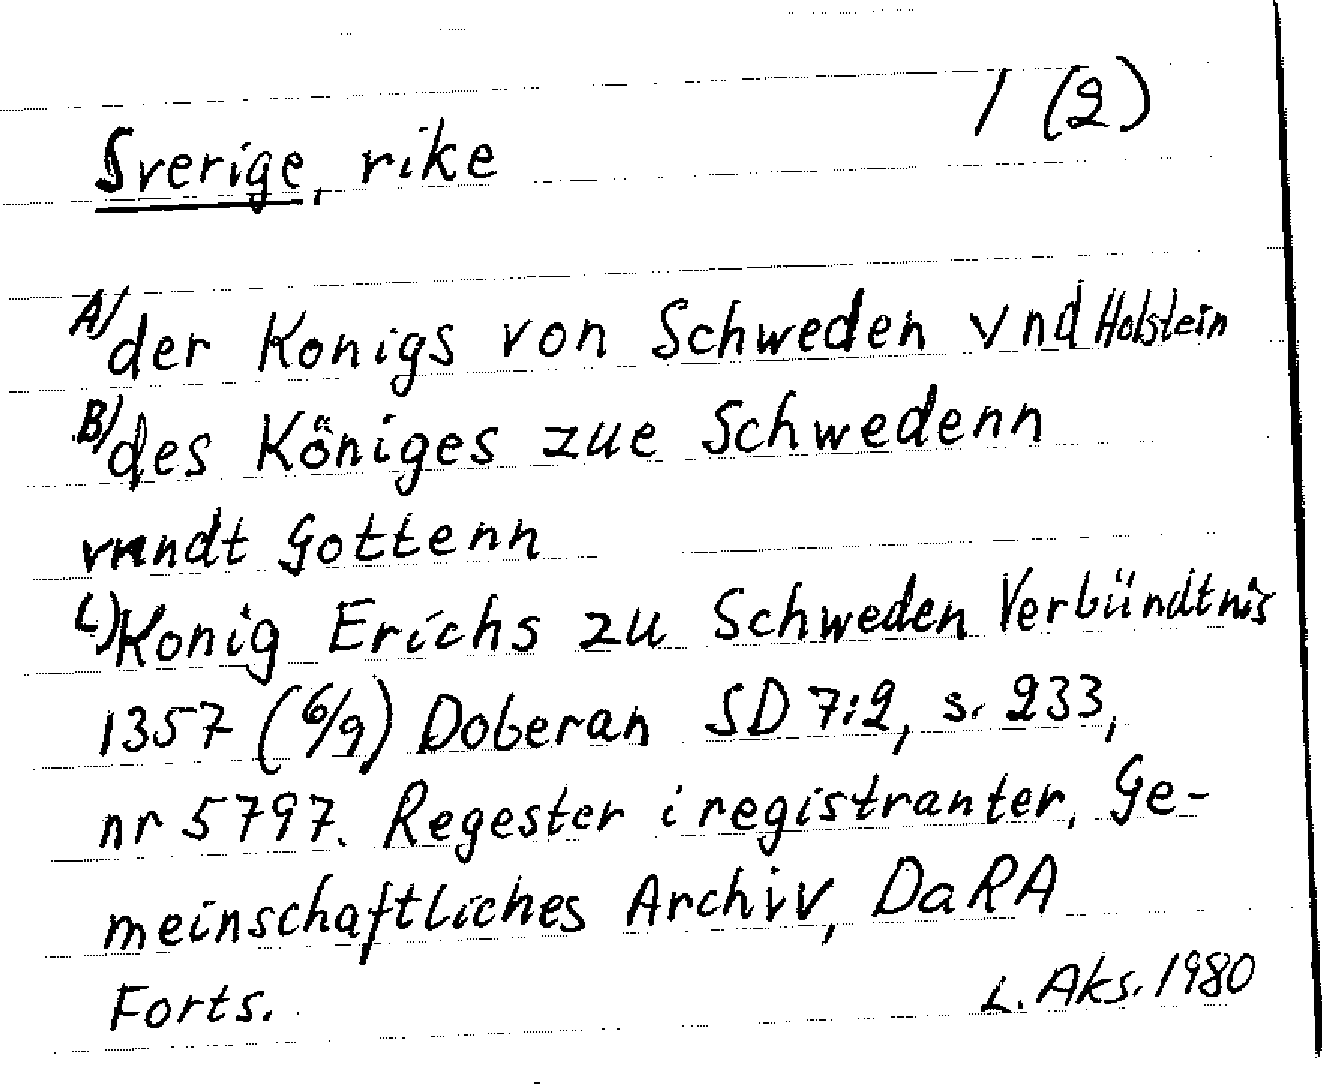 1 (2)
Sverige, rike
A) der Konigs von Schweden vnd Holstein
B) des Königes zue Schwedenn
vnndt Gottenn
C) Konig Erichs zu Schweden Verbündtnis
1357 (6/9) Doberan SD 7:2, s. 233,
nr 5797. Regester i registranter, Ge-
meinschaftliches Archiv, DaRA
Forts.
L. Aks. 1980